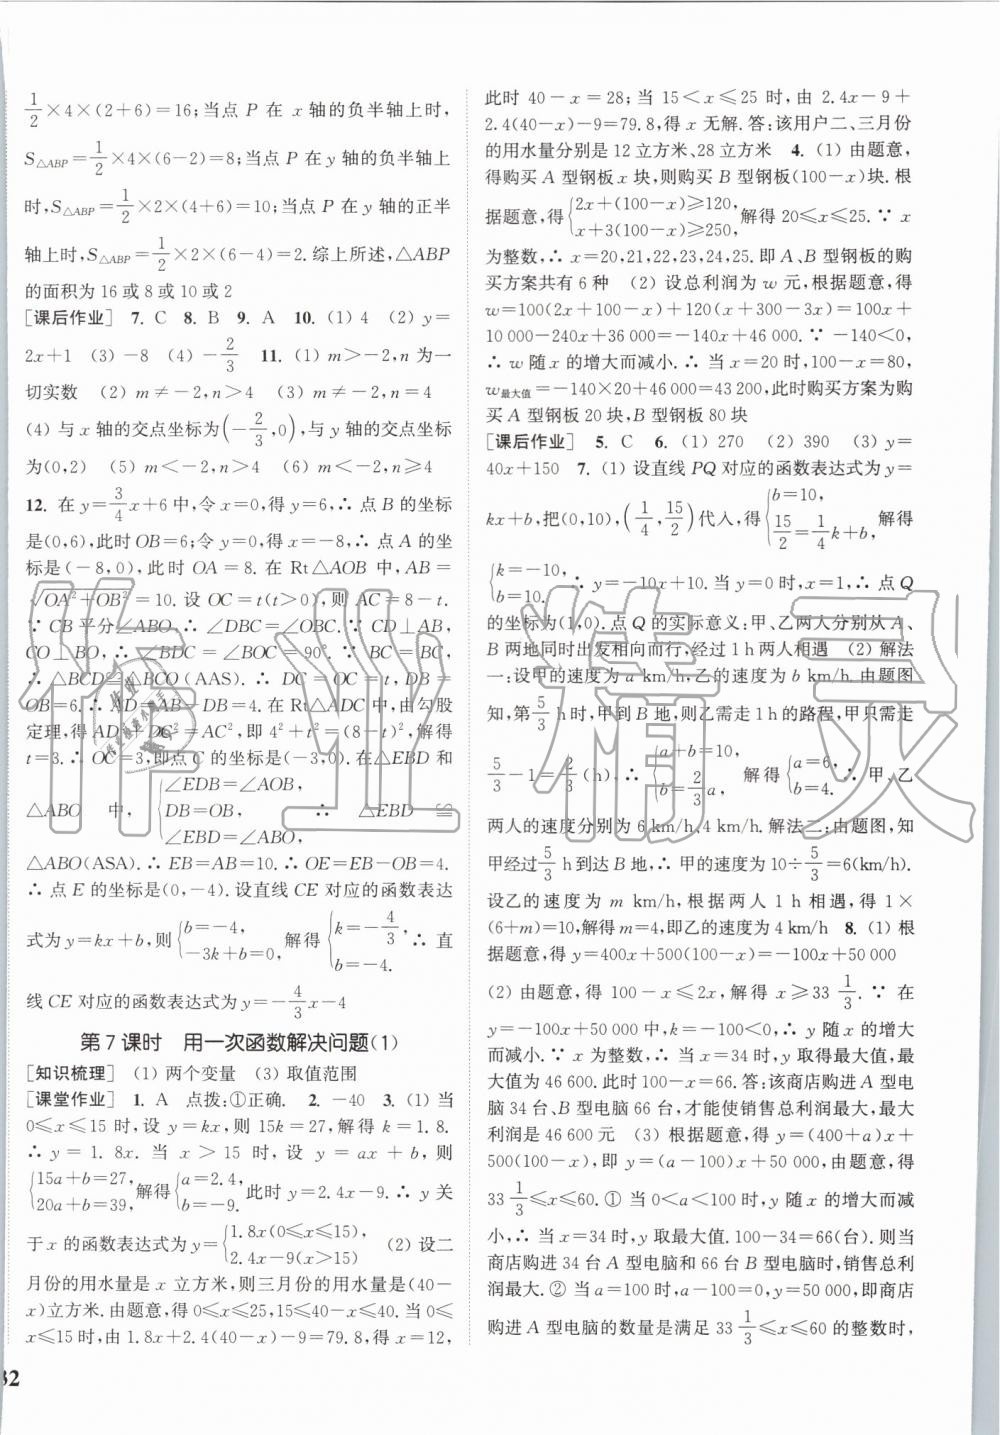 1/2×4×(2+6)=16;当点 P 在 x 轴的负半轴上时,
S△ABP=1/2×4×(6-2)=8;当点 P 在 y 轴的负半轴上
时,S△ABP=1/2×2×(4+6)=10;当点 P 在 y 轴的正半
轴上时,S△ABP=1/2×2×(6-4)=2.综上所述,△ABP
的面积为 16 或 8 或 10 或 2
[课后作业] 7. C 8. B 9. A 10. (1) 4 (2) y=
2x+1 (3) -8 (4) -2/3 11. (1) m>-2,n 为一
切实数 (2) m≠-2,n>4 (3) m≠-2,n=4
(4) 与 x 轴的交点坐标为(-2/3,0),与 y 轴的交点坐标
为(0,2) (5) m<-2,n>4 (6) m<-2,n≥4
12. 在 y=3/4x+6 中,令 x=0,得 y=6,∴ 点 B 的坐标
是(0,6),此时 OB=6;令 y=0,得 x=-8,∴ 点 A 的坐
标是(-8,0),此时 OA=8. 在 Rt△AOB 中,AB=
√OA²+OB²=10. 设 OC=t(t>0),则 AC=8-t.
∵ CB 平分∠ABO,∴ ∠DBC=∠OBC. ∵ CD⊥AB,
CO⊥BO,∴ ∠BDC=∠BOC=90°. ∵ BC=BC,
∴ △BCD≌△BCO(AAS). ∴ DC=OC=t,BD=
OB=6. ∴ AD=AB-BD=4. 在 Rt△ADC 中,由勾股
定理,得 AD²+DC²=AC²,即 4²+t²=(8-t)²,解得
t=3.∴ OC=3,即点 C 的坐标是(-3,0).在△EBD 和
△ABO 中,{∠EDB=∠AOB, DB=OB, ∠EBD=∠ABO, ∴ △EBD≌
△ABO(ASA).∴ EB=AB=10.∴ OE=EB-OB=4.
∴ 点 E 的坐标是(0,-4). 设直线 CE 对应的函数表达
式为 y=kx+b,则{b=-4, -3k+b=0, 解得{k=-4/3, b=-4. ∴ 直
线 CE 对应的函数表达式为 y=-4/3x-4
第 7 课时 用一次函数解决问题(1)
[知识梳理] (1) 两个变量 (3) 取值范围
[课堂作业] 1. A 点拨:①正确. 2. -40 3. (1) 当
0≤x≤15 时,设 y=kx,则 15k=27,解得 k=1. 8.
∴ y=1. 8x. 当 x>15 时,设 y=ax+b,则
{15a+b=27, 20a+b=39, 解得{a=2.4, b=-9. 此时 y=2.4x-9.∴ y 关
于 x 的函数表达式为 y={1.8x(0≤x≤15), 2.4x-9(x>15) (2) 设二
月份的用水量是 x 立方米,则三月份的用水量是(40-
x)立方米.由题意,得 0≤x≤25,15≤40-x. 当 0≤
x≤15 时,由 1.8x+2.4(40-x)-9=79.8,得 x=12,
32
此时 40-x=28;当 15<x≤25 时,由 2.4x-9+
2.4(40-x)-9=79.8,得 x 无解.答:该用户二、三月份
的用水量分别是 12 立方米、28 立方米 4. (1) 由题意,
得购买 A 型钢板 x 块,则购买 B 型钢板(100-x)块. 根
据题意,得{2x+(100-x)≥120, x+3(100-x)≥250, 解得 20≤x≤25. ∵ x
为整数,∴ x=20,21,22,23,24,25. 即 A、B 型钢板的购
买方案共有 6 种 (2) 设总利润为 w 元,根据题意,得
w=100(2x+100-x)+120(x+300-3x)=100x+
10 000-240x+36 000=-140x+46 000. ∵ -140<0,
∴ w 随 x 的增大而减小.∴ 当 x=20 时,100-x=80,
w最大值=-140×20+46 000=43 200,此时购买方案为购
买 A 型钢板 20 块,B 型钢板 80 块
[课后作业] 5. C 6. (1) 270 (2) 390 (3) y=
40x+150 7. (1) 设直线 PQ 对应的函数表达式为 y=
kx+b,把(0,10),(1/4,15/2)代入,得{b=10, 15/2=1/4k+b, 解得
{k=-10, b=10. ∴ y=-10x+10. 当 y=0 时,x=1,∴ 点 Q
的坐标为(1,0). 点 Q 的实际意义:甲、乙两人分别从 A、
B 两地同时出发相向而行,经过 1 h 两人相遇 (2) 解法
一:设甲的速度为 a km/h,乙的速度为 b km/h. 由题图
知,第5/3 h 时,甲到 B 地,则乙需走 1 h 的路程,甲只需走
5/3-1=2/3(h). ∴ {a+b=10, b=2/3a, 解得{a=6, b=4. ∴ 甲、乙
两人的速度分别为 6 km/h、4 km/h. 解法二:由题图,知
甲经过5/3 h 到达 B 地,∴ 甲的速度为 10÷5/3=6(km/h).
设乙的速度为 m km/h,根据两人 1 h 相遇,得 1×
(6+m)=10,解得 m=4,即乙的速度为 4 km/h 8. (1)
根据题意,得 y=400x+500(100-x)=-100x+50 000
(2) 由题意,得 100-x≤2x,解得 x≥33 1/3. ∵ 在
y=-100x+50 000 中,k=-100<0,∴ y 随 x 的增大
而减小. ∵ x 为整数,∴ 当 x=34 时,y 取得最大值,最
大值为 46 600. 此时 100-x=66. 答:该商店购进 A 型电
脑 34 台、B 型电脑 66 台,才能使销售总利润最大,最大
利润是 46 600 元 (3) 根据题意,得 y=(400+a)x+
500(100-x),即 y=(a-100)x+50 000. 由题意,得
33 1/3≤x≤60. ① 当 0<a<100 时,y 随 x 的增大而减
小,∴ 当 x=34 时,y 取最大值.100-34=66(台). 则当
商店购进 34 台 A 型电脑和 66 台 B 型电脑时,销售总利
润最大. ② 当 a=100 时,y=50 000,即商店
购进 A 型电脑的数量是满足 33 1/3≤x≤60 的整数时,
作业精灵